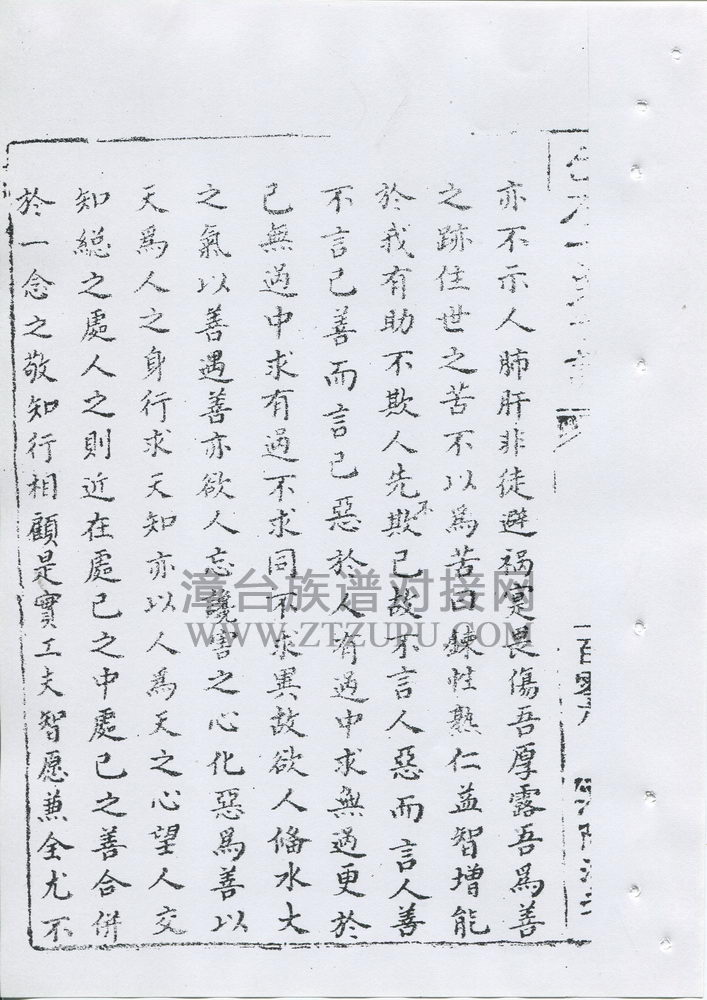 亦不示人肺肝非徒避禍寔畏傷吾厚露吾為善
之跡住世之苦不以為苦曰鍊性熟仁益智增能
於我有助不欺人先不欺己故不言人惡而言人善
不言己善而言己惡於人有過中求無過更於
己無過中求有過不求同不求異故欲人偹水大
之氣以善遇善亦欲人忘讒害之心化惡爲善以
天爲人之身行求天知亦以人爲天之心望人交
知總之處人之則近在處己之中處己之善合併
於一念之敬知行相顧是實工夫智愿兼全尤不
一百零六
漳台族谱对接网
WWW.ZTZUPU.COM